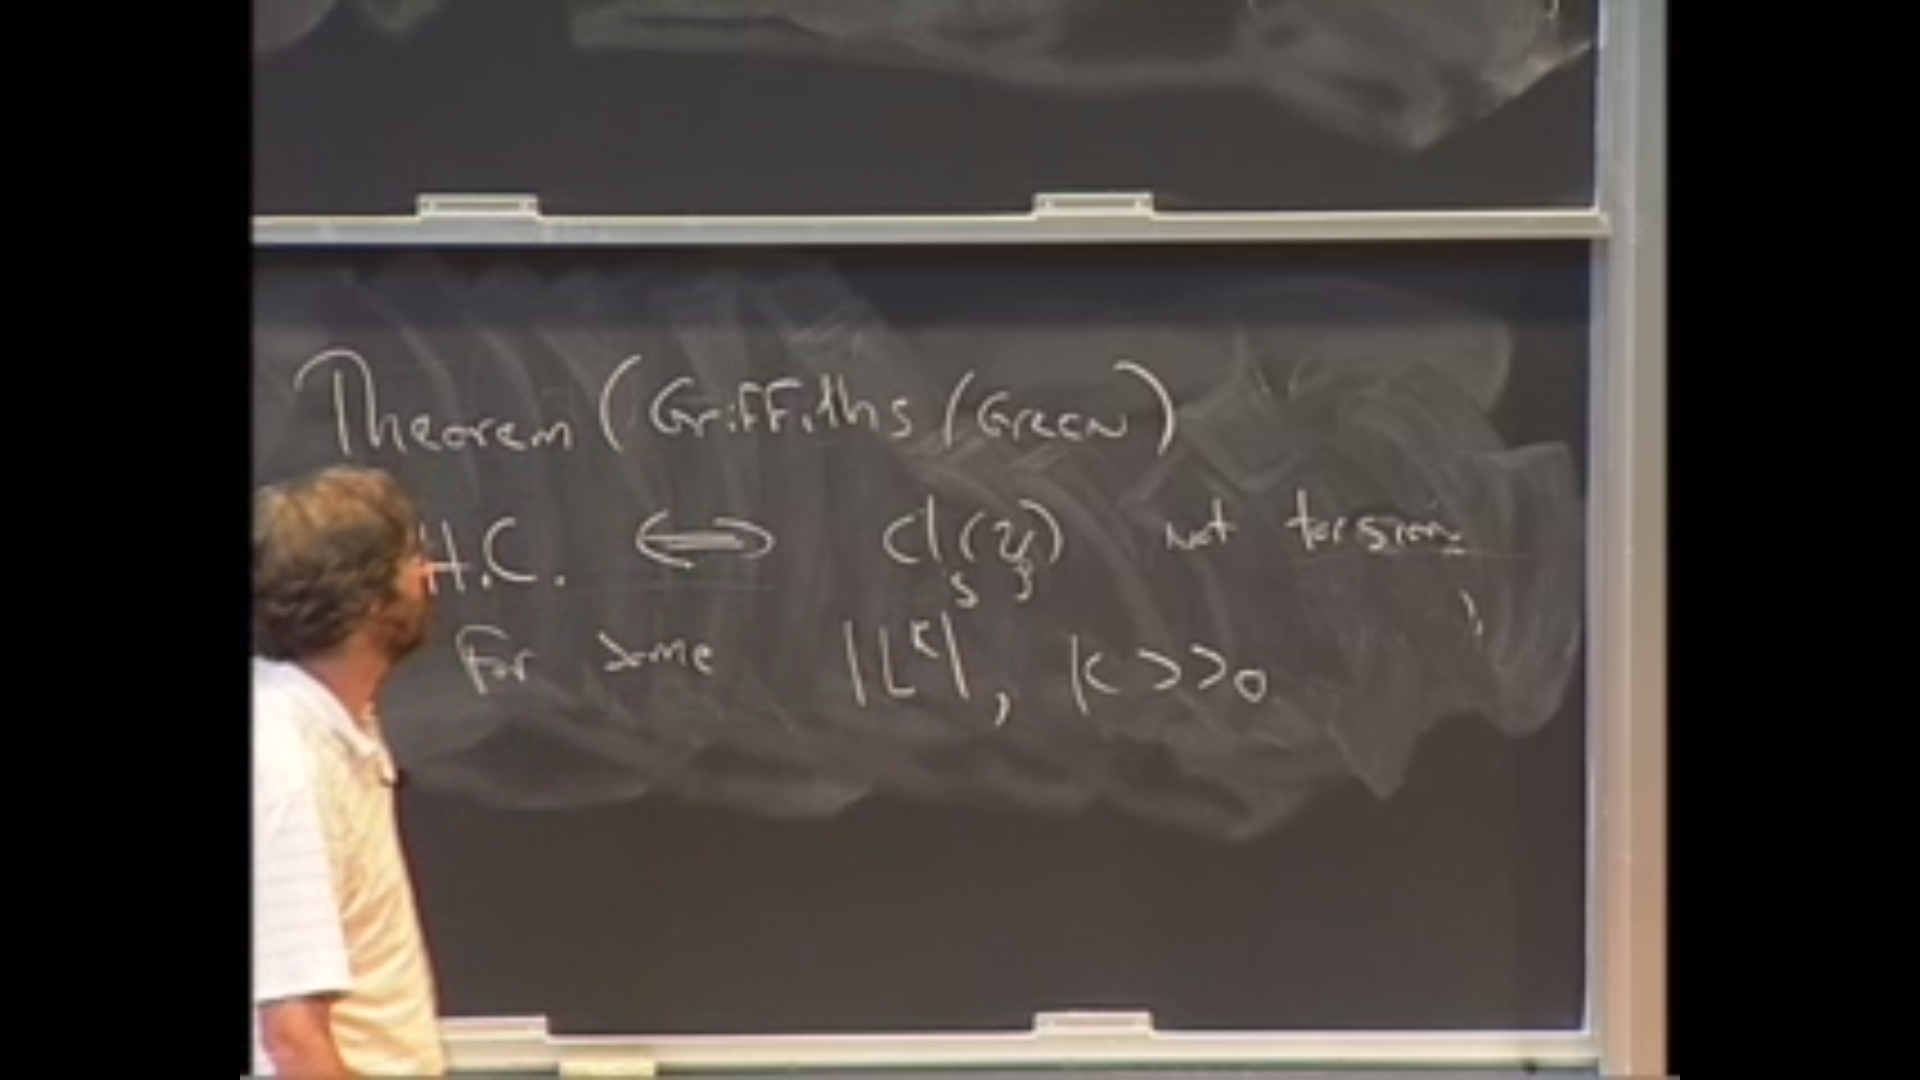 Theorem (Griffiths/Green)
H.C. ⟺ cl_s(ν_ζ) not torsion,
For some |L^k|, k >> 0